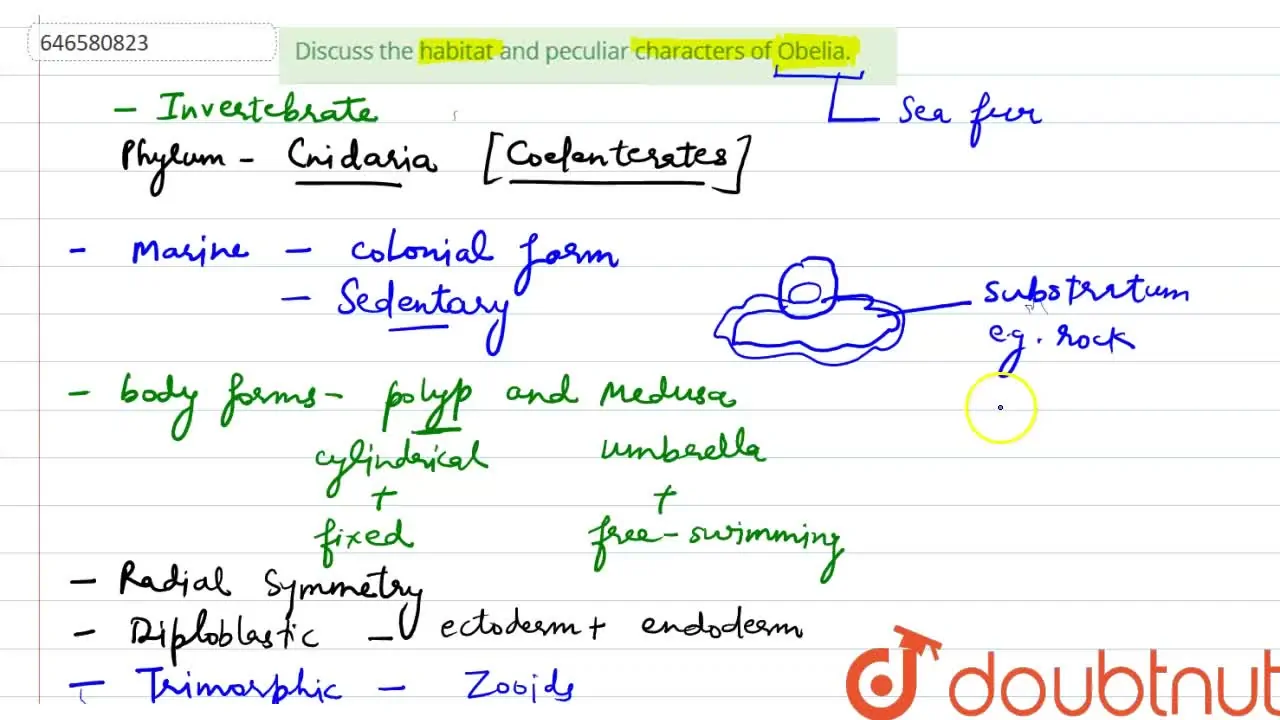 646580823
Discuss the habitat and peculiar characters of Obelia.
- Invertebrate
Sea fur
Phylum - Cnidaria [Coelenterates]
- Marine - colonial form
- Sedentary
substratum
e.g. rock
- body forms - polyp and Medusa
cylinderical umbrella
+ +
fixed free-swimming
- Radial Symmetry
- Diploblastic - ectoderm + endoderm
- Trimorphic - Zooids
doubtnut